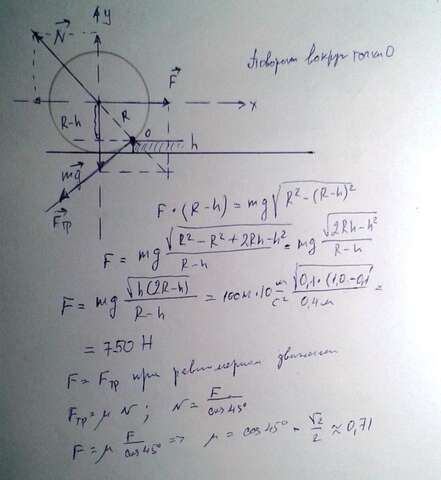 Поворот вокруг точки O
y
N
F
x
R-h
R
O
h
mg
Fтр
F·(R-h) = mg√(R²-(R-h)²)
F = mg √(R²-R²+2Rh-h²) / (R-h) = mg √(2Rh-h²) / (R-h)
F = mg √(h(2R-h)) / (R-h) = 100кг·10 м/с² √(0,1·(1,0-0,1)) / 0,4м =
= 750 Н
F = Fтр при равномерном движении
Fтр = μ N; N = F / cos45°
F = μ F / cos45° => μ = cos45° = √2 / 2 ≈ 0,71